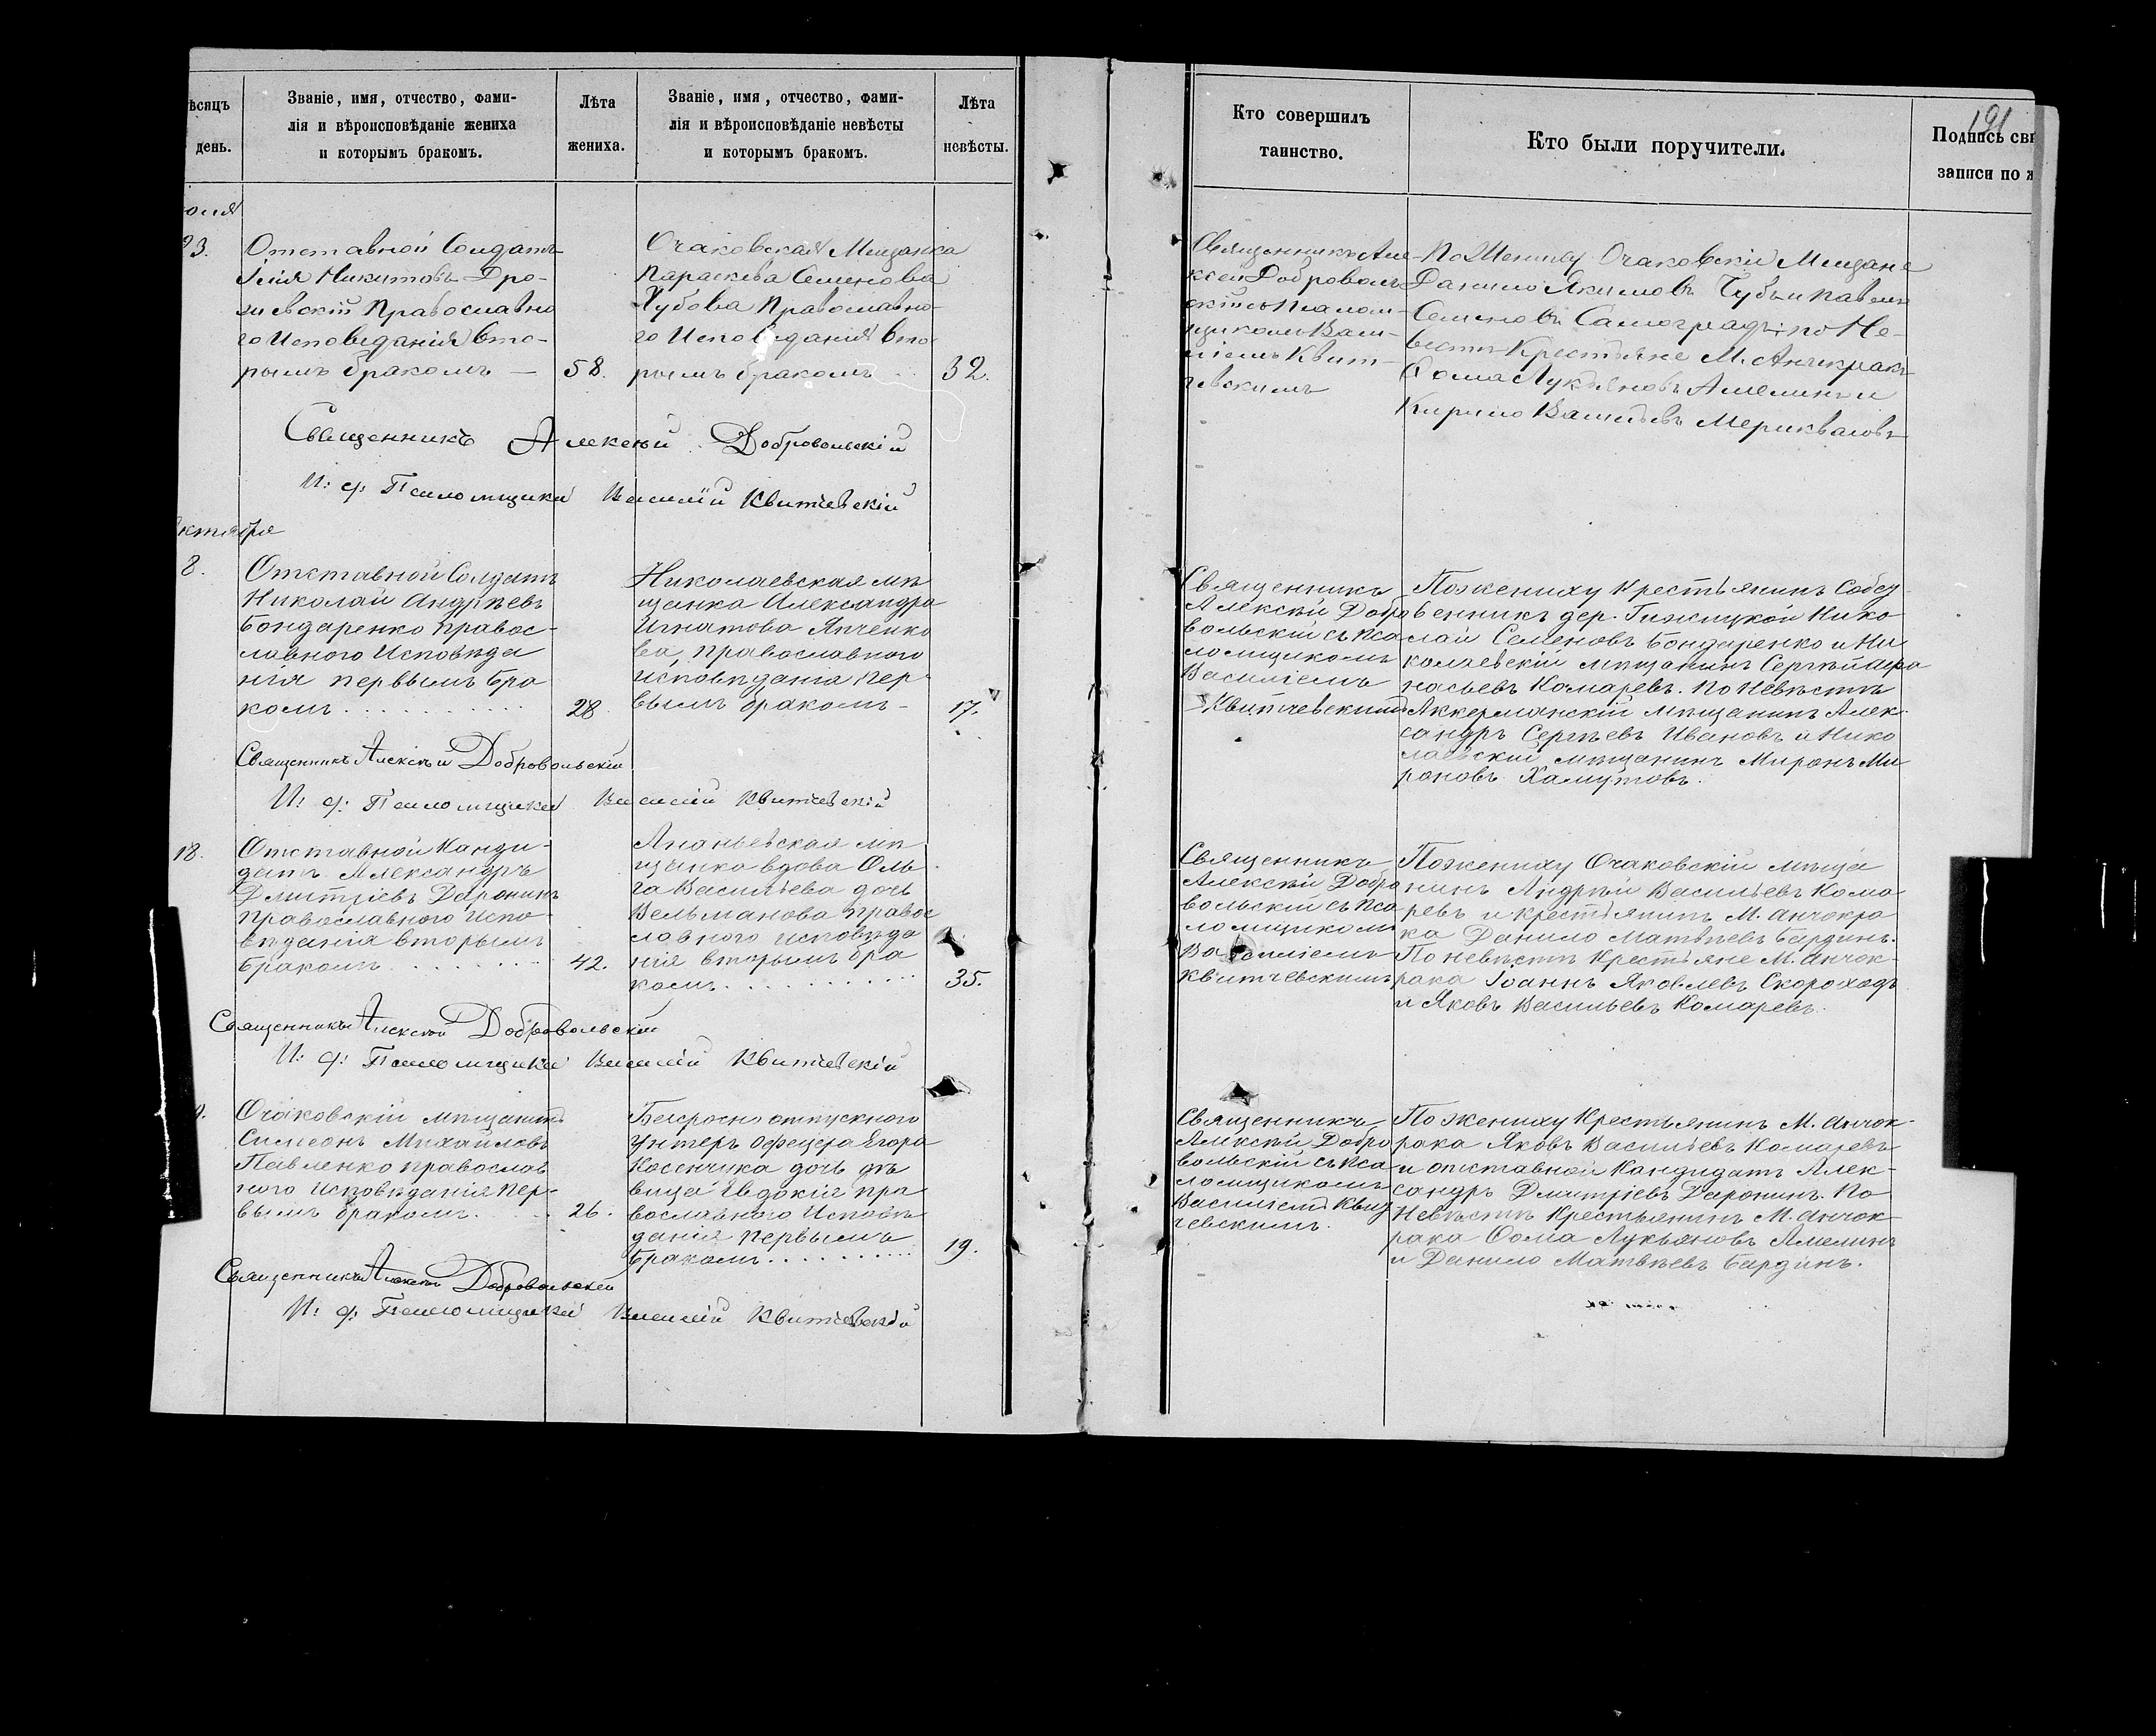 ѣсяцъ
день.
Званіе, имя, отчество, фами-
лія и вѣроисповѣданіе жениха
и которымъ бракомъ.
Лѣта
жениха.
Званіе, имя, отчество, фами-
лія и вѣроисповѣданіе невѣсты
и которымъ бракомъ.
Лѣта
невѣсты.
23.
Отставной Солдатъ
Илія Никитовъ Дро-
Православна
го Исповеданія вто-
рымъ бракомъ —
58.
Очаковская Мещанка
Параскева Семенова
Чубова Православна
го Исповеданія вто
рымъ бракомъ
32.
Священникъ Алексѣй Добровольскій
И: ф: Псаломщика Василій Квитчевскій
ктября
8.
Отставной Солдатъ
Николай Андрѣевъ
Бондаренко правос-
лавного Исповѣда
нія первымъ бра
комъ
28
Николаевская мѣ
щанка Александра
Игнатова Япченко
ва, православного
исповѣданія пер-
вымъ бракомъ —
17.
Священникъ Алексѣй Добровольскій
И: ф: Псаломщика Василій Квитчевскій
18.
Отставной Канди-
датъ Александръ
Дмитріевъ Даронинъ
православного испо-
вѣданія вторымъ
бракомъ
42.
Ананьевская мѣ
щанка вдова Оль
га Васильева дочь
Вельманова правос
лавного исповѣда
нія вторымъ бра
комъ
35.
Священникъ Алексѣй Добровольскій
И: ф: Псаломщика Василій Квитчевскій
9.
Очаковскій мѣщанинъ
Симеонъ Михайловъ
Павленко православ
ного исповѣданія пер-
вымъ бракомъ.
26.
Безсрочно отпускного
унтеръ офецера Егора
Косенчука дочь дѣ
вица Евдокія пра
вославного Исповѣ
данія первымъ
бракомъ
19.
Священникъ Алексѣй Добровольскій
И: ф: Псаломщика Василій Квитчевскій
191
Кто совершилъ
таинство.
Кто были поручители.
Подпись сви
записи по ж
Священникъ Але-
ксей Доброволь
скій съ Псалом-
щикомъ Васи-
ліемъ Квит-
чевскимъ
По Жениху Очаковскій Мещане
Данило Якимовъ Чубъ и Павелъ
Семеновъ Самоградъ; по Не-
вестѣ Крестьяне М. Анчкракъ
Фома Лукьяновъ Амелинъ и
Кирило Васильевъ
Священникъ
Алексѣй Добро
вольскій съ Пса
ломщикомъ
Василіемъ
Квитчевскимъ
По жениху Крестьянинъ Собст
венникъ дер. Нико
лай Семеновъ Бондаренко и Ни
колаевскій мѣщанинъ Сергѣй Афа
насьевъ Комаревъ. По Невѣстѣ
Аккерманскій мѣщанинъ Алек
сандръ Сергѣевъ Ивановъ и Нико
лаевскій мѣщанинъ Миронъ Ми
роновъ Хамутовъ.
Священникъ
Алексѣй Добро
вольскій съ Пса
ломщикомъ
Василіемъ
Квитчевскимъ
По жениху Очаковскій мѣща
нинъ Андрѣй Васильевъ Кома-
ревъ и крестьянинъ М. Анчокра
ка Данило Матвѣевъ Бардинъ.
По невѣстѣ Крестьяне М. Анчок-
рака Іоаннъ Яковлевъ Скороходъ
и Яковъ Васильевъ Комаревъ.
Священникъ
Алексѣй Добро
вольскій съ Пса
ломщикомъ
Василіемъ Квит
чевскимъ.
По жениху Крестьянинъ М. Анчок-
рака Яковъ Васильевъ Комаревъ
и отставной Кандидатъ Алек-
сандръ Дмитріевъ Даронинъ. По
Невѣстѣ Крестьянинъ М. Анчок
рака Фома Лукьяновъ Амелинъ
и Данило Матвѣевъ Бардинъ.